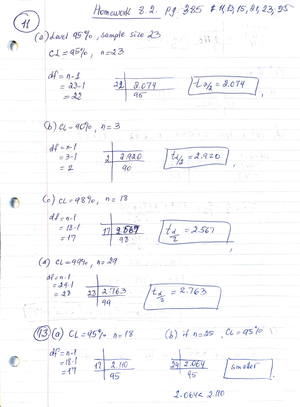 Homework 8.2. pg. 385 # 11, 13, 15, 21, 23, 25
11
(a) Level 95%, sample size 23
CL = 95%, n = 23
df = n-1
= 23-1
= 22
22 | 2.074
95
tα/2 = 2.074
(b) CL = 90%, n = 3
df = n-1
= 3-1
= 2
2 | 2.920
90
tα/2 = 2.920
(c) CL = 98%, n = 18
df = n-1
= 18-1
= 17
17 | 2.567
98
tα/2 = 2.567
(d) CL = 99%, n = 29
df = n-1
= 29-1
= 28
28 | 2.763
99
tα/2 = 2.763
13 (a) CL = 95% n = 18 (b) if n = 25, CL = 95%
df = n-1
= 18-1
= 17
17 | 2.110
95
24 | 2.064
95
smaller
2.064 < 2.110